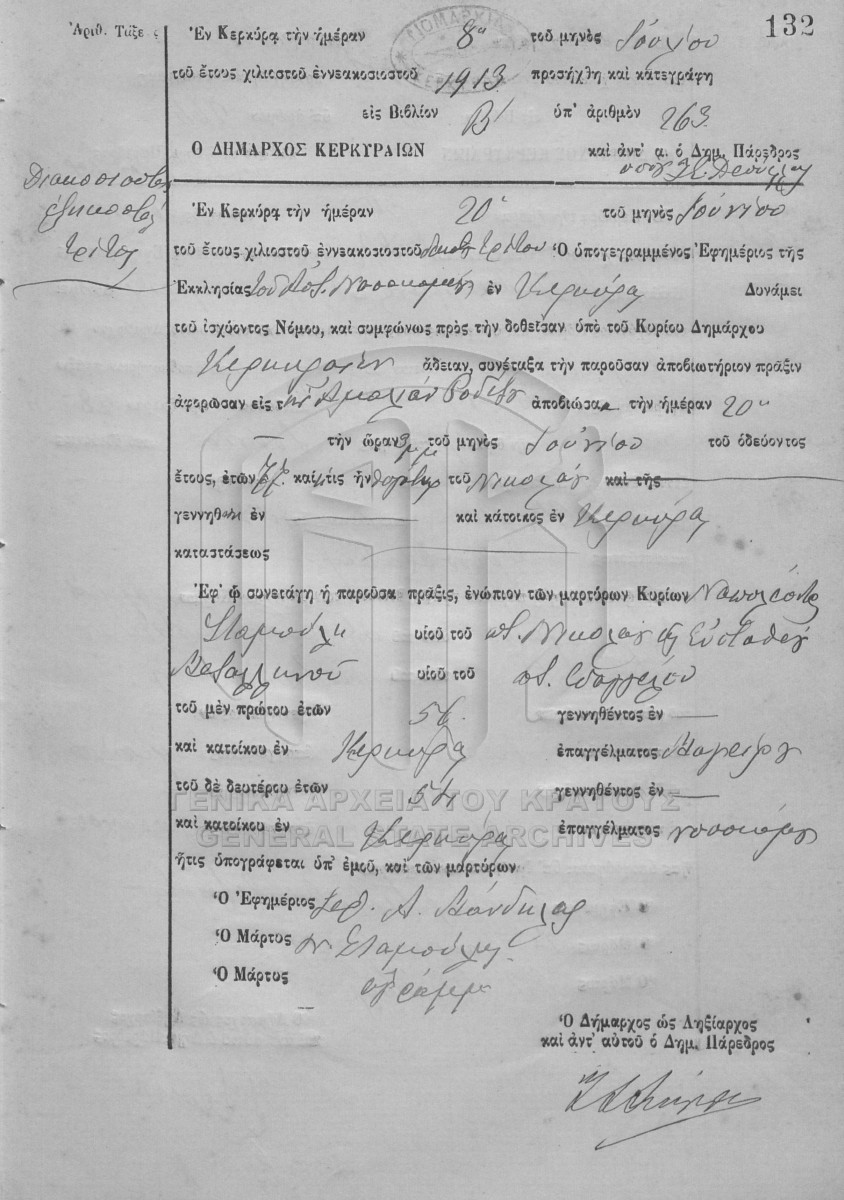 132
Ἀριθ. Τάξε ς
Ἐν Κερκύρᾳ τὴν ἡμέραν 8η τοῦ μηνὸς Ἰουλίου
τοῦ ἔτους χιλιοστοῦ ἐννεακοσιοστοῦ 1913 προσήχθη καὶ κατεγράφη
εἰς Βιβλίον Β' ὑπ' ἀριθμὸν 263
Ο ΔΗΜΑΡΧΟΣ ΚΕΡΚΥΡΑΙΩΝ καὶ ἀντ' α. ὁ Δημ. Πάρεδρος
Διακοσιοστὸς
ἑξηκοστὸς
τρίτος
Ἐν Κερκύρᾳ τὴν ἡμέραν 20 τοῦ μηνὸς Ἰουνίου
τοῦ ἔτους χιλιοστοῦ ἐννεακοσιοστοῦ δεκάτου τρίτου Ὁ ὑπογεγραμμένος Ἐφημέριος τῆς
Ἐκκλησίας τοῦ Νοσοκομείου ἐν Κερκύρᾳ Δυνάμει
τοῦ ἰσχύοντος Νόμου, καὶ συμφώνως πρὸς τὴν δοθεῖσαν ὑπὸ τοῦ Κυρίου Δημάρχου
Κερκυραίων ἄδειαν, συνέταξα τὴν παροῦσαν ἀποβιωτήριον πρᾶξιν
ἀφορωσαν εἰς τὴν Ἀμαλίαν ἀποβιώσασα τὴν ἡμέραν 20
τὴν ὥραν 3 μμ τοῦ μηνὸς Ἰουνίου τοῦ ὁδεύοντος
ἔτους, ἐτῶν καὶ τις ἦν θυγάτηρ τοῦ Νικολάου καὶ τῆς
γεννηθ ἐν καὶ κάτοικος ἐν Κερκύρᾳ
καταστάσεως
Ἐφ' ᾧ συνετάγη ἡ παροῦσα πρᾶξις, ἐνώπιον τῶν μαρτύρων Κυρίων Ναπολέοντος
Σταμούλη υἱοῦ τοῦ ποτ. Νικολάου καὶ Εὐσταθίου
υἱοῦ τοῦ ποτ.
τοῦ μὲν πρώτου ἐτῶν 56 γεννηθέντος ἐν
καὶ κατοίκου ἐν Κερκύρᾳ ἐπαγγέλματος Μαγείρου
τοῦ δὲ δευτέρου ἐτῶν 54 γεννηθέντος ἐν
ΓΕΝΙΚΑ ΑΡΧΕΙΑ ΤΟΥ ΚΡΑΤΟΥΣ
GENERAL STATE ARCHIVES
καὶ κατοίκου ἐν Κερκύρᾳ ἐπαγγέλματος νοσοκόμου
ἥτις ὑπογράφεται ὑπ' ἐμοῦ, καὶ τῶν μαρτύρων
Ὁ Ἐφημέριος
Ὁ Μάρτυς Ν. Σταμούλης
Ὁ Μάρτυς ἀγράμμ.
Ὁ Δήμαρχος ὡς Ληξίαρχος
καὶ ἀντ' αὐτοῦ ὁ Δημ. Πάρεδρος